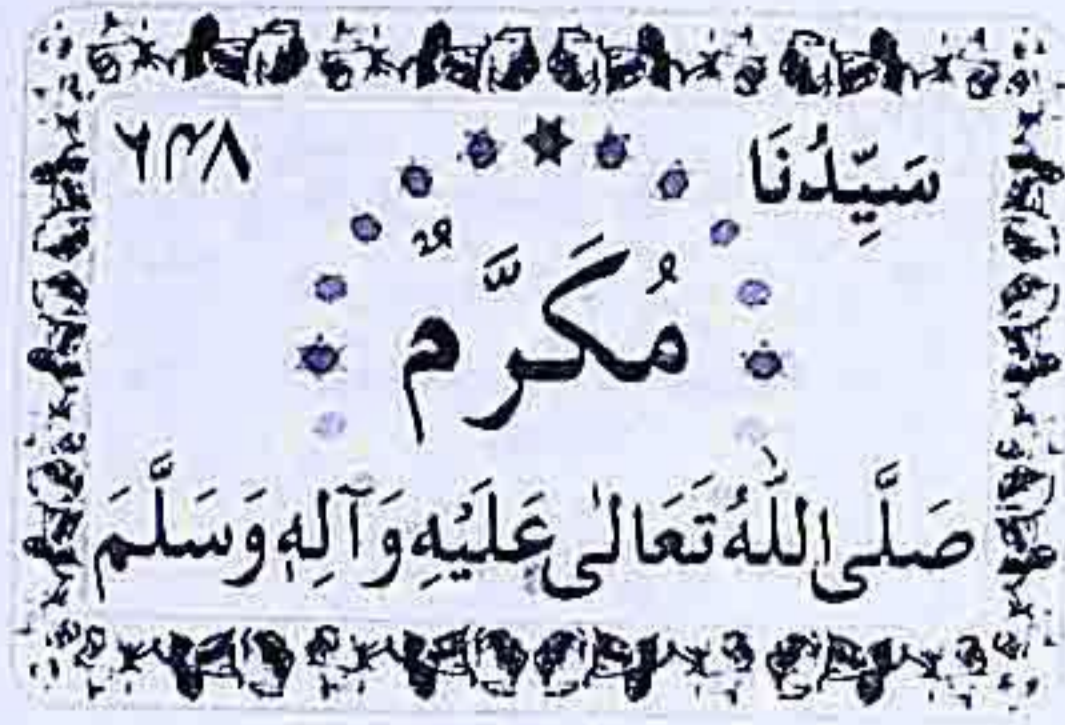 سَيِّدُنَا ۶۴۸
مُكَرَّمٌ
صَلَّى اللّٰهُ تَعَالٰى عَلَيْهِ وَآلِهٖ وَسَلَّمَ